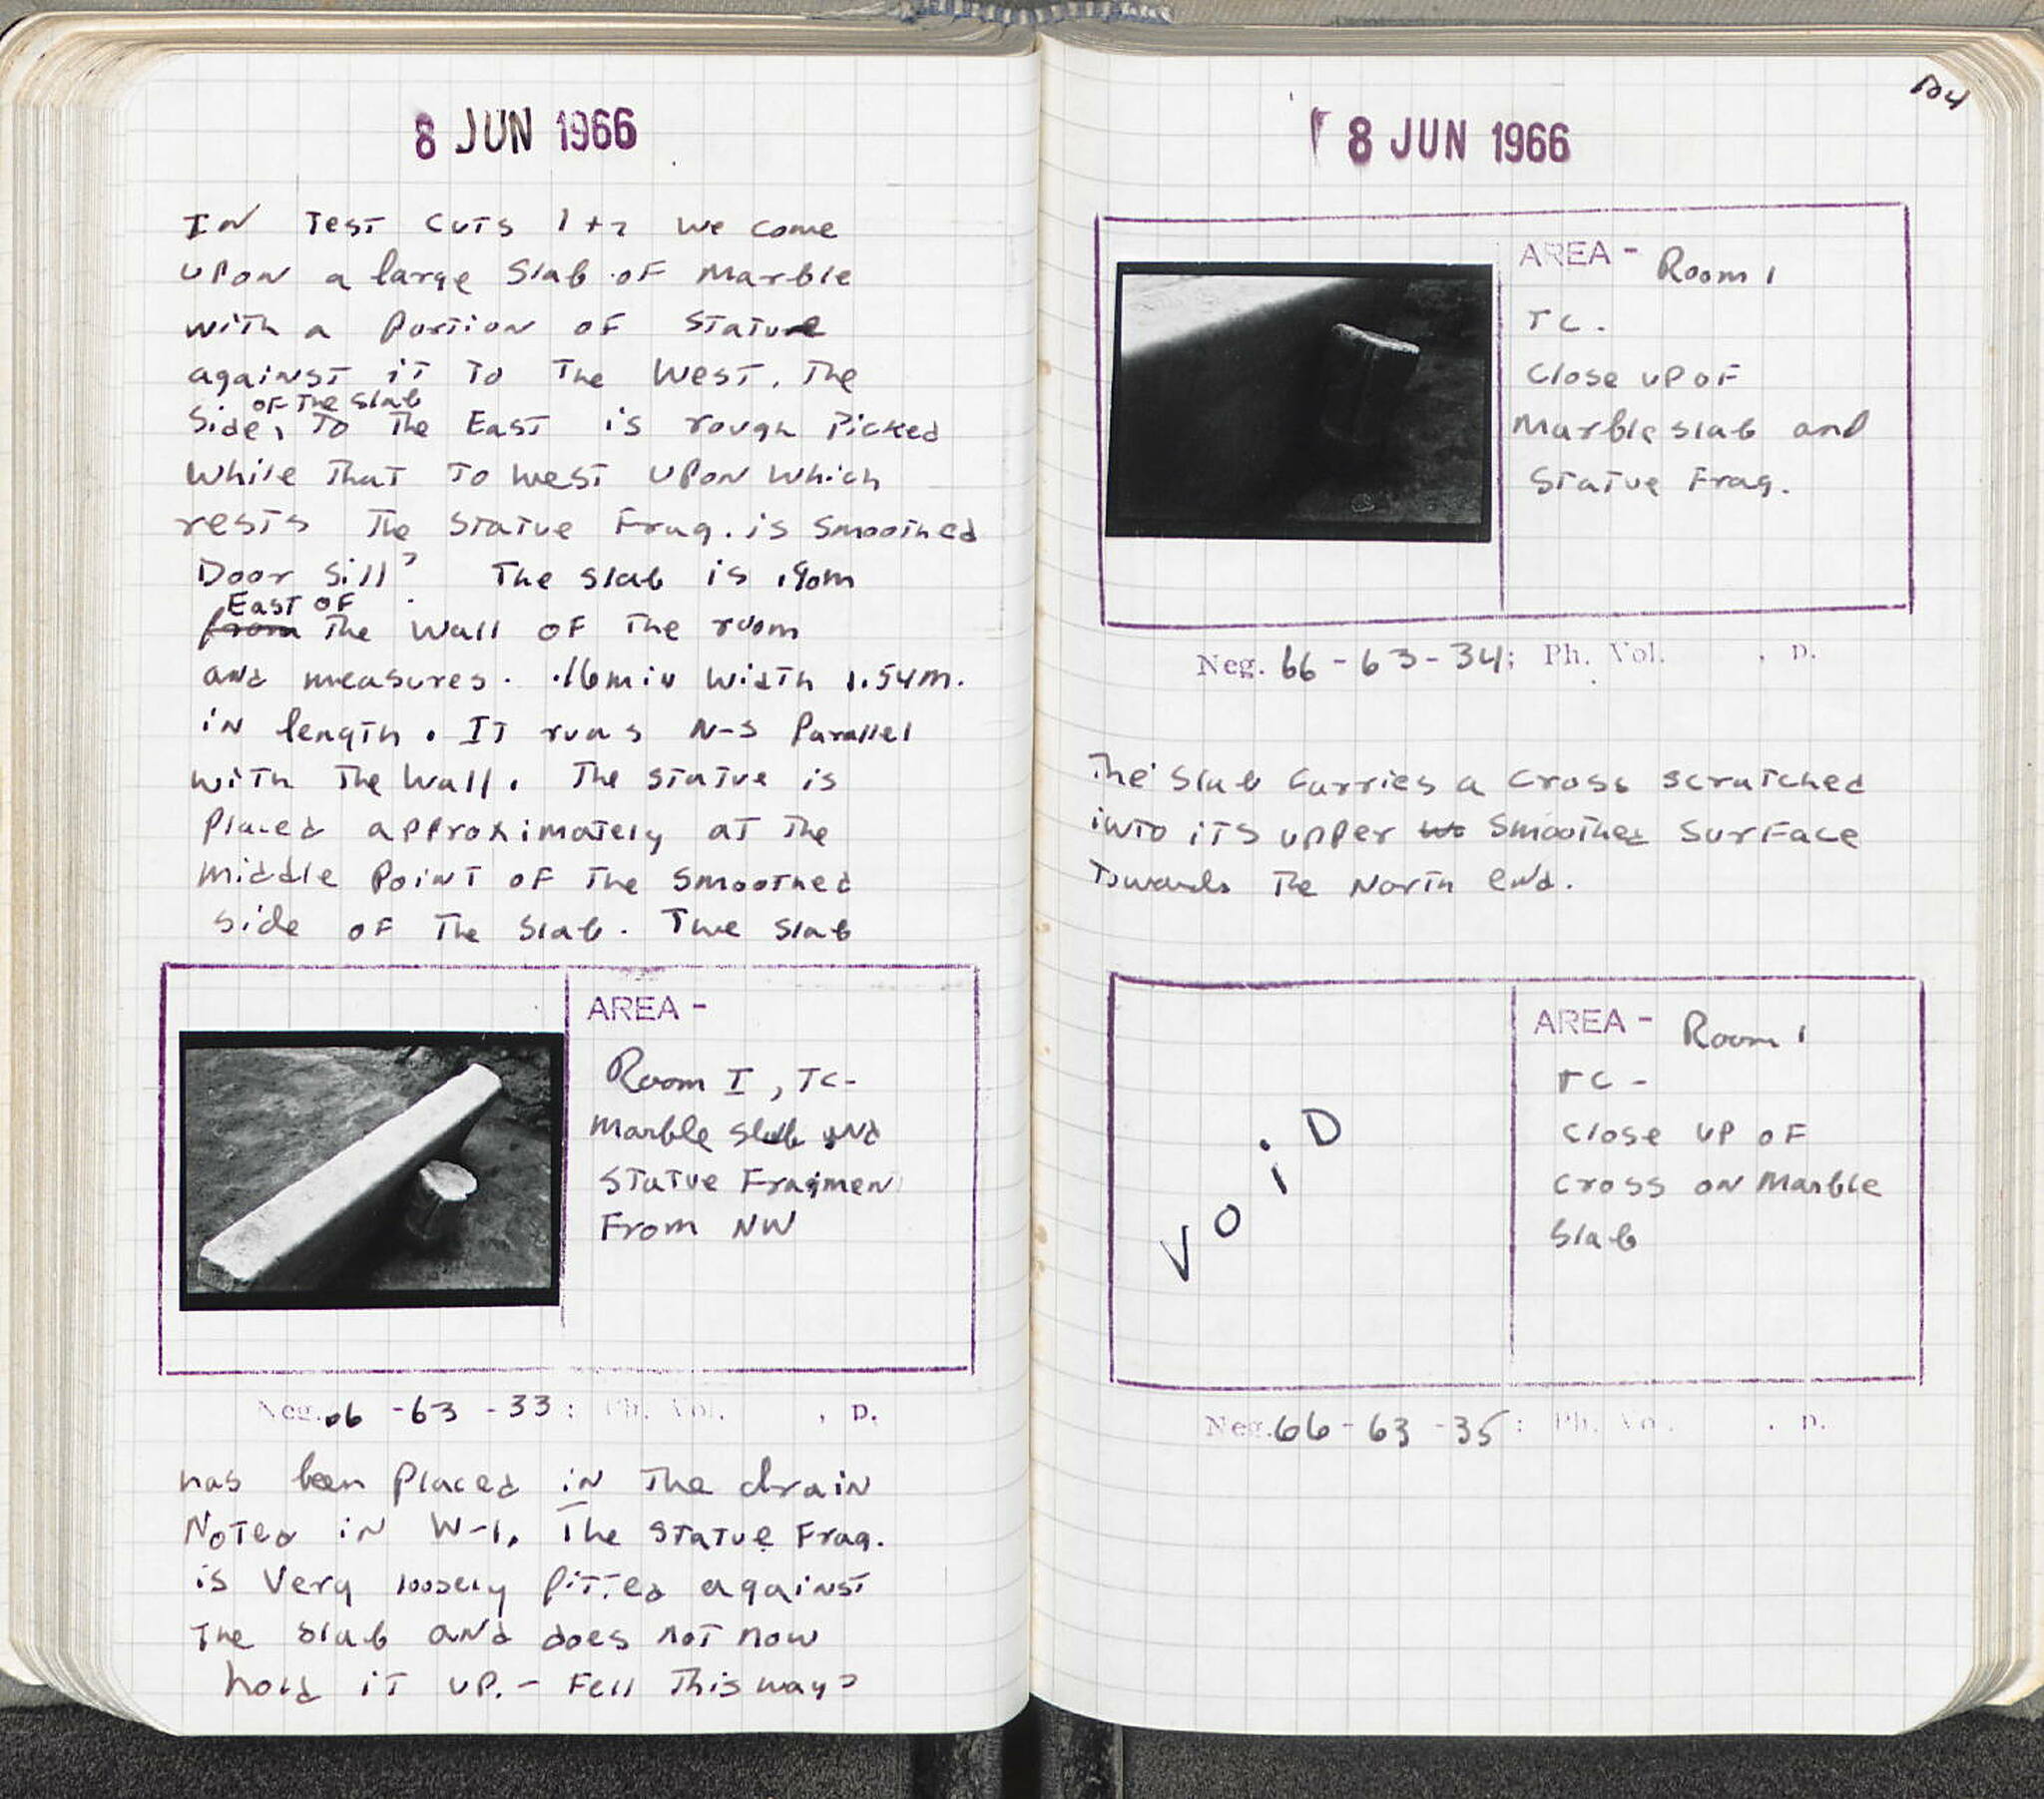 8 JUN 1966
IN Test cuts 1+2 we come
upon a large Slab of Marble
with a portion of Statue
against it to the West. The
of the slab
Side, to the East is rough picked
while that to west upon which
rests the statue Frag. is Smoothed
Door Sill? The slab is .90m
East of
from the wall of the room
and measures. .16m in width 1.54m.
in length. It runs N-S parallel
with the wall. The statue is
placed approximately at the
middle point of the smoothed
side of the slab. The slab
AREA -
Room I, TC-
Marble slab and
Statue Fragmen
From NW
Neg. 66 - 63 - 33: Ph. Vol. , p.
has been placed in the drain
Noted in W-1. The statue Frag.
is very loosely fitted against
the slab and does not now
hold it up. - Fell this way?
104
8 JUN 1966
AREA - Room 1
TC.
Close up of
Marble slab and
Statue Frag.
Neg. 66 - 63 - 34; Ph. Vol. , p.
The slab carries a cross scratched
into its upper smoothed surface
towards the North end.
VOID
AREA - Room 1
TC -
Close up of
cross on Marble
Slab
Neg. 66 - 63 - 35: Ph. Vo . . p.